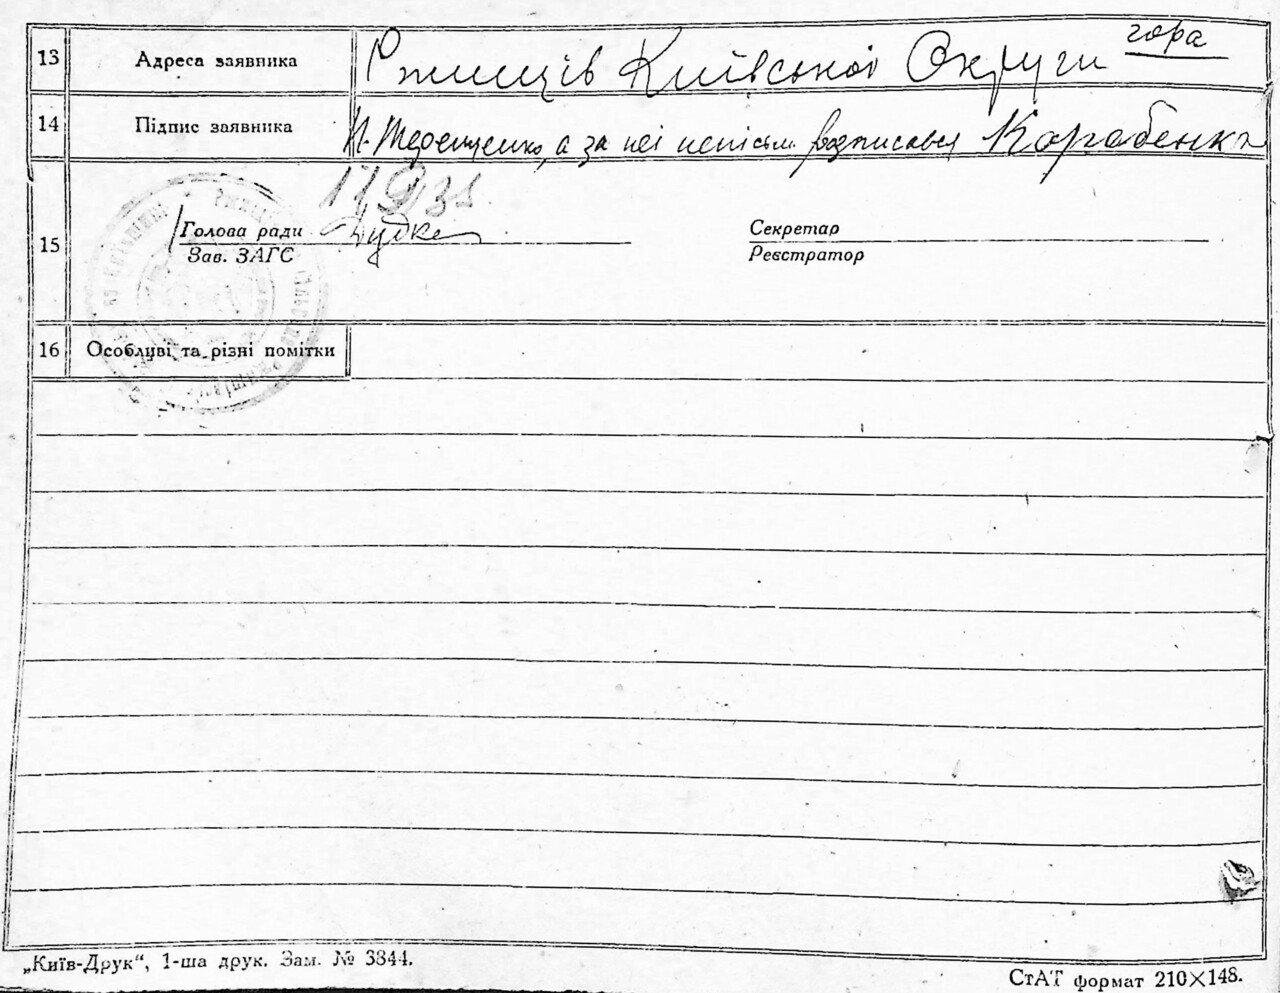 13 Адреса заявника Ржищів Київської Округи гора
14 Підпис заявника Терещенко, а за неї неписьм. розписався Коробенко
15 Голова ради Дудка Секретар
Зав. ЗАГС Реєстратор
16 Особливі та різні помітки
„Київ-Друк“, 1-ша друк. Зам. № 3844.
СтАТ формат 210×148.